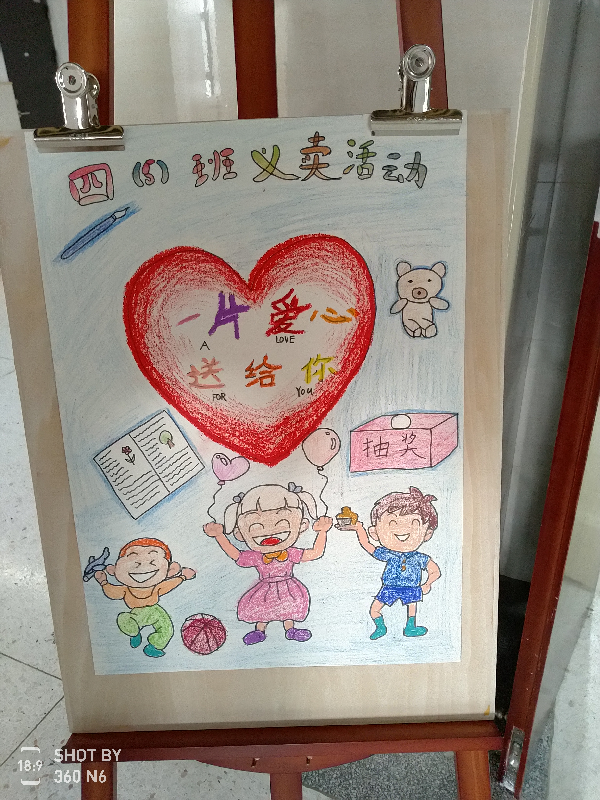 四(5)班义卖活动
一片爱心
A LOVE
送给你
FOR YOU
抽奖
18:9 SHOT BY
360 N6